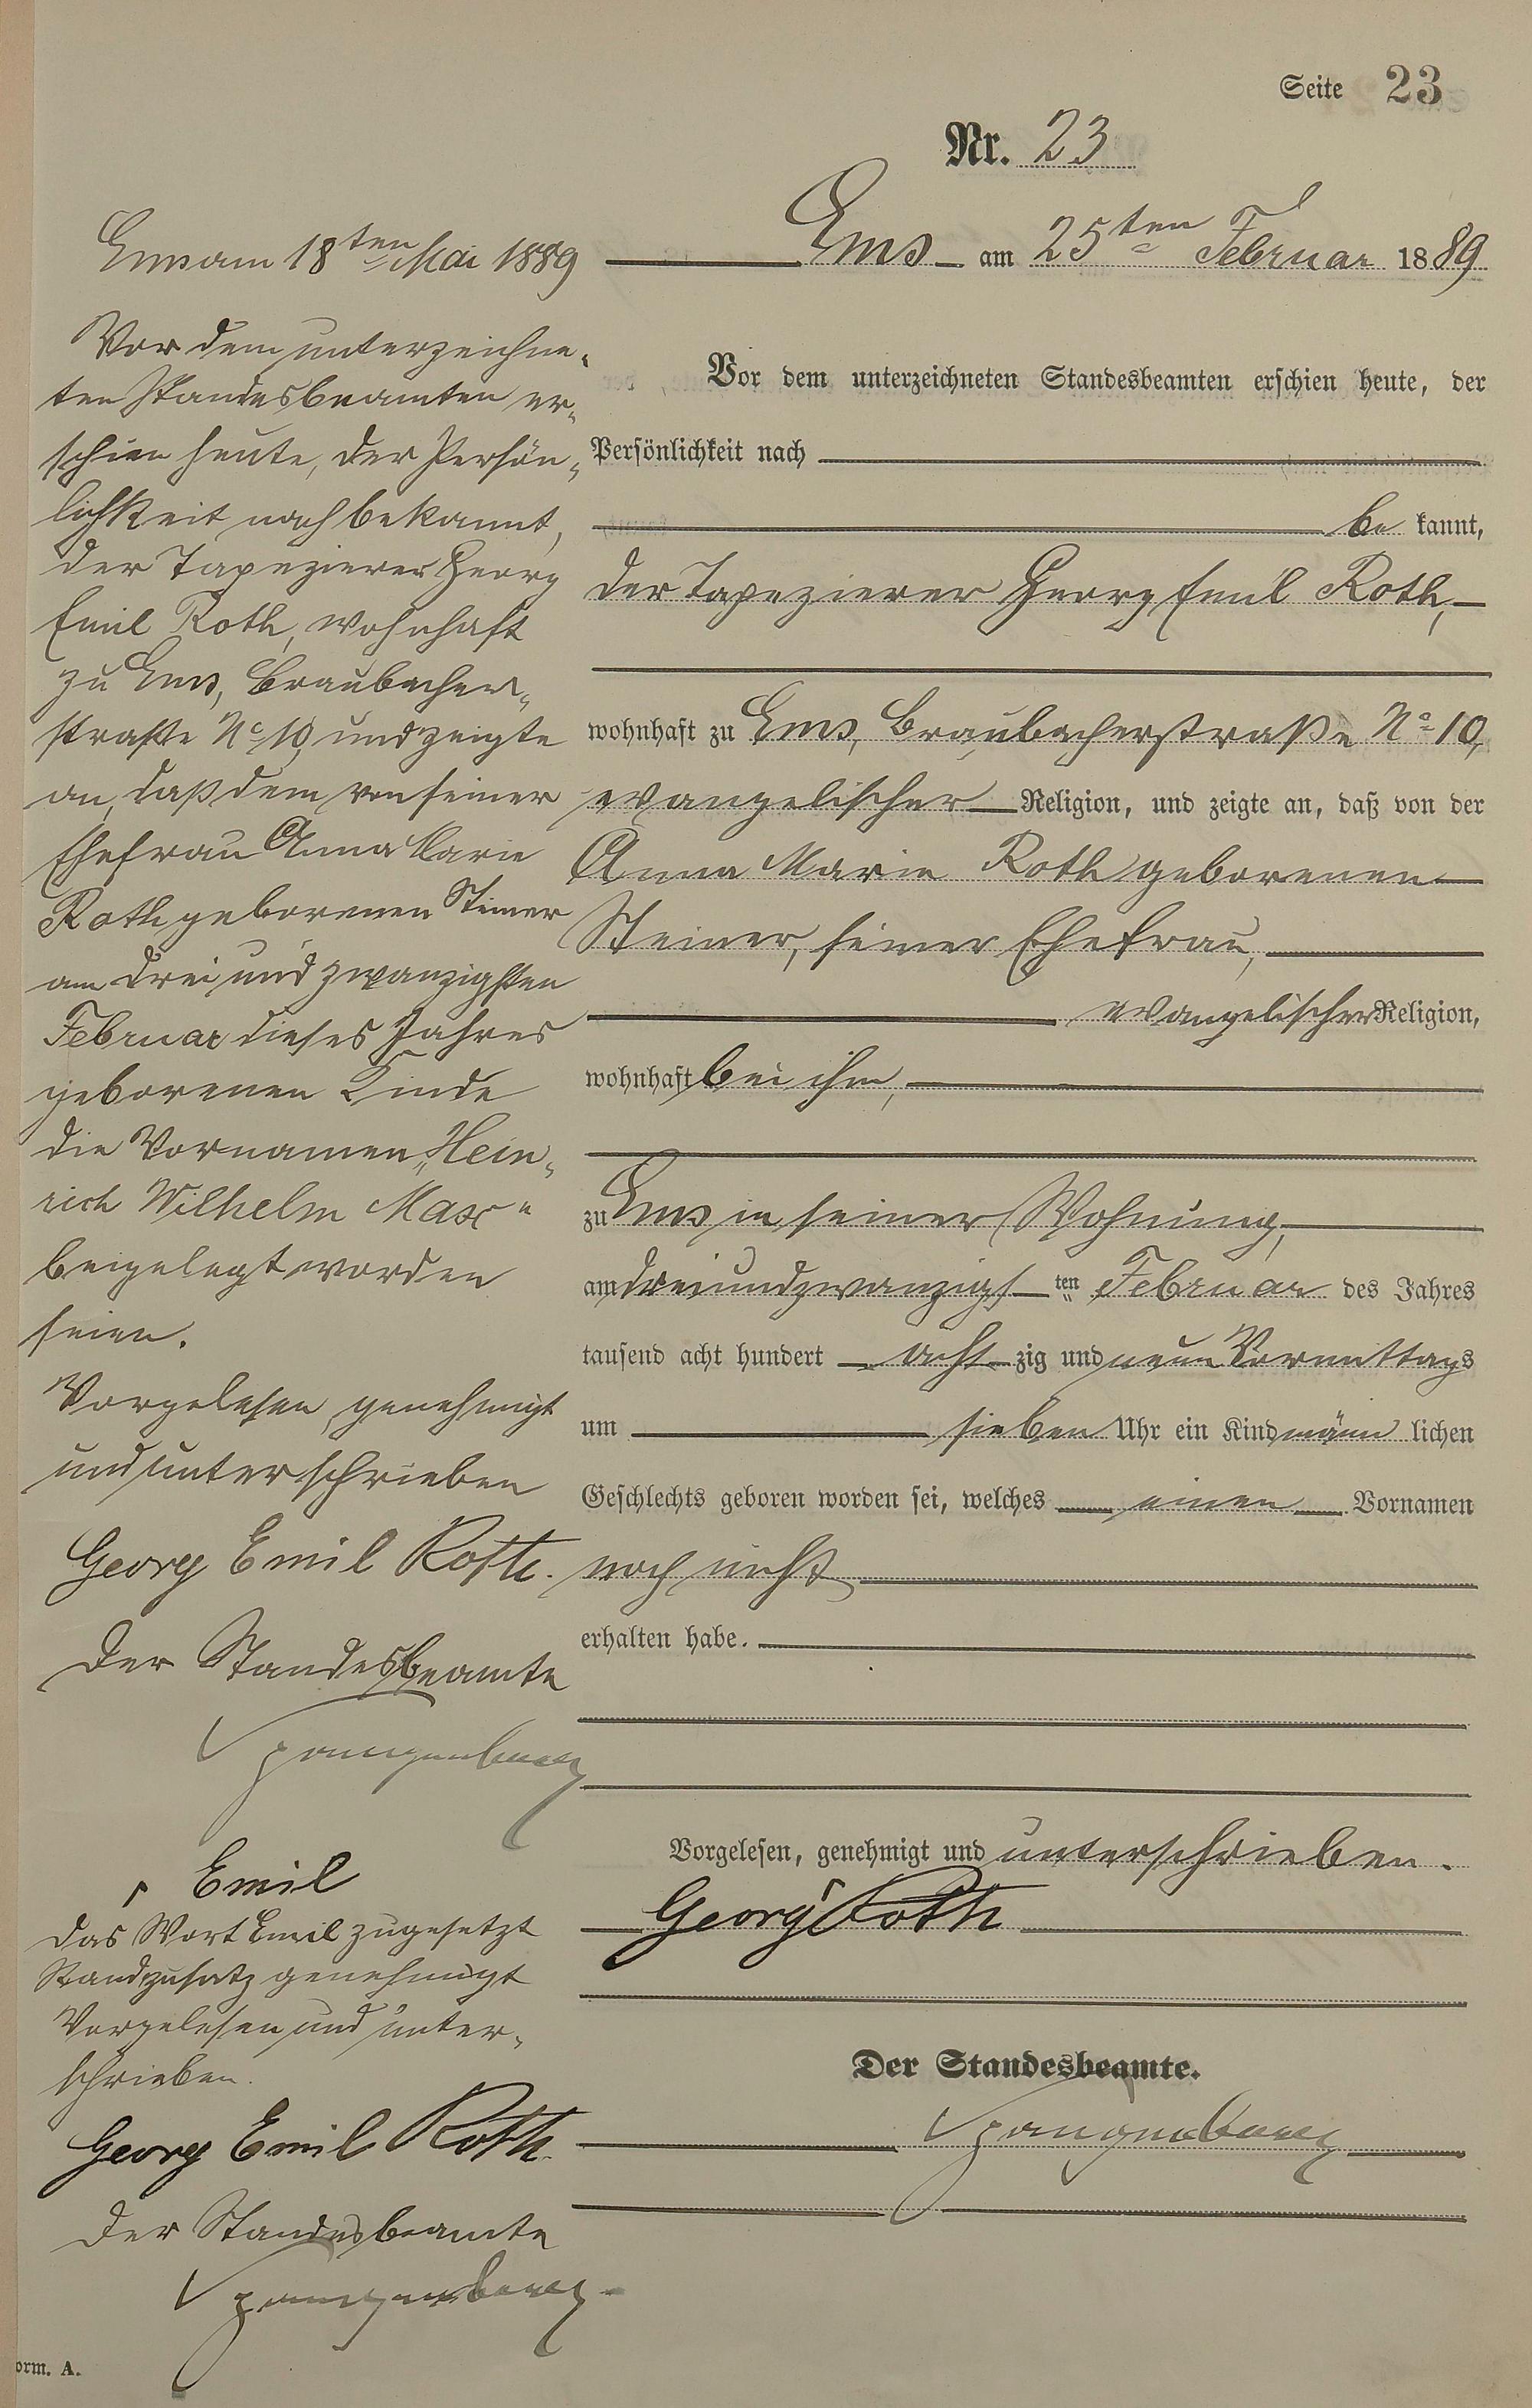 Seite 23
Nr. 23
Ems am 25ten Februar 1889
Vor dem unterzeichneten Standesbeamten erschien heute, der
Persönlichkeit nach
be kannt,
der Tapezierer Georg Emil Roth,
wohnhaft zu Ems, Braubacherstraße No 10,
evangelischer Religion, und zeigte an, daß von der
Anna Marie Roth geborenen
Steiner, seiner Ehefrau,
evangelischer Religion,
wohnhaft bei ihm,
zu Ems in seiner Wohnung,
am dreiundzwanzigsten Februar des Jahres
tausend acht hundert acht zig und neun Vormittags
um sieben Uhr ein Kind männ lichen
Geschlechts geboren worden sei, welches einen Vornamen
noch nicht
erhalten habe.
Vorgelesen, genehmigt und unterschrieben.
Georg Roth
Der Standesbeamte.
Spangenberg
Ems am 18ten Mai 1889
Vor dem unterzeichne-
ten Standesbeamten er-
schien heute, der Persön-
lichkeit nach bekannt,
der Tapezierer Georg
Emil Roth, wohnhaft
zu Ems, Braubacher-
straße No 10, und zeigte
an, daß dem von seiner
Ehefrau Anna Marie
Roth geborenen Steiner
am drei und zwanzigsten
Februar dieses Jahres
geborenen Kinde
die Vornamen „Hein-
rich Wilhelm Max“
beigelegt worden
seien.
Vorgelesen, genehmigt
und unterschrieben
Georg Emil Roth.
Der Standesbeamte
Spangenberg
┌ Emil
Das Wort Emil zugesetzt
Randzusatz genehmigt
Vorgelesen und unter-
schrieben.
Georg Emil Roth.
Der Standesbeamte
Spangenberg
orm. A.